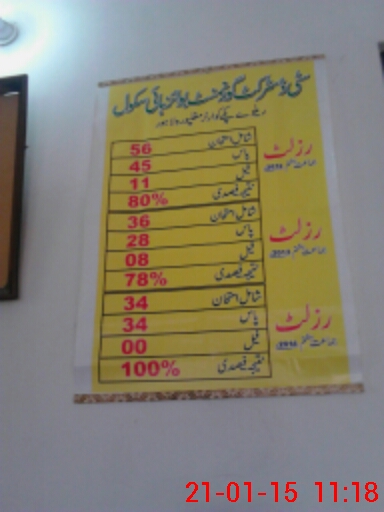 سٹی ڈسٹرکٹ گورنمنٹ بوائز ہائی سکول
ریلوے پکے کوارٹر مغلپورہ لاہور
رزلٹ
شامل امتحان 56
پاس 45
فیل 11
نتیجہ فیصدی 80%
رزلٹ
شامل امتحان 36
پاس 28
فیل 08
نتیجہ فیصدی 78%
رزلٹ
شامل امتحان 34
پاس 34
فیل 00
نتیجہ فیصدی 100%
21-01-15 11:18